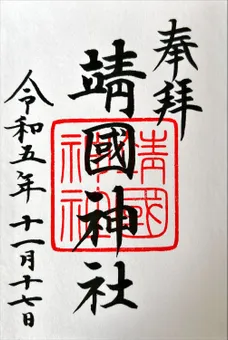 奉拝
靖國神社
令和五年十一月十七日
靖國神社